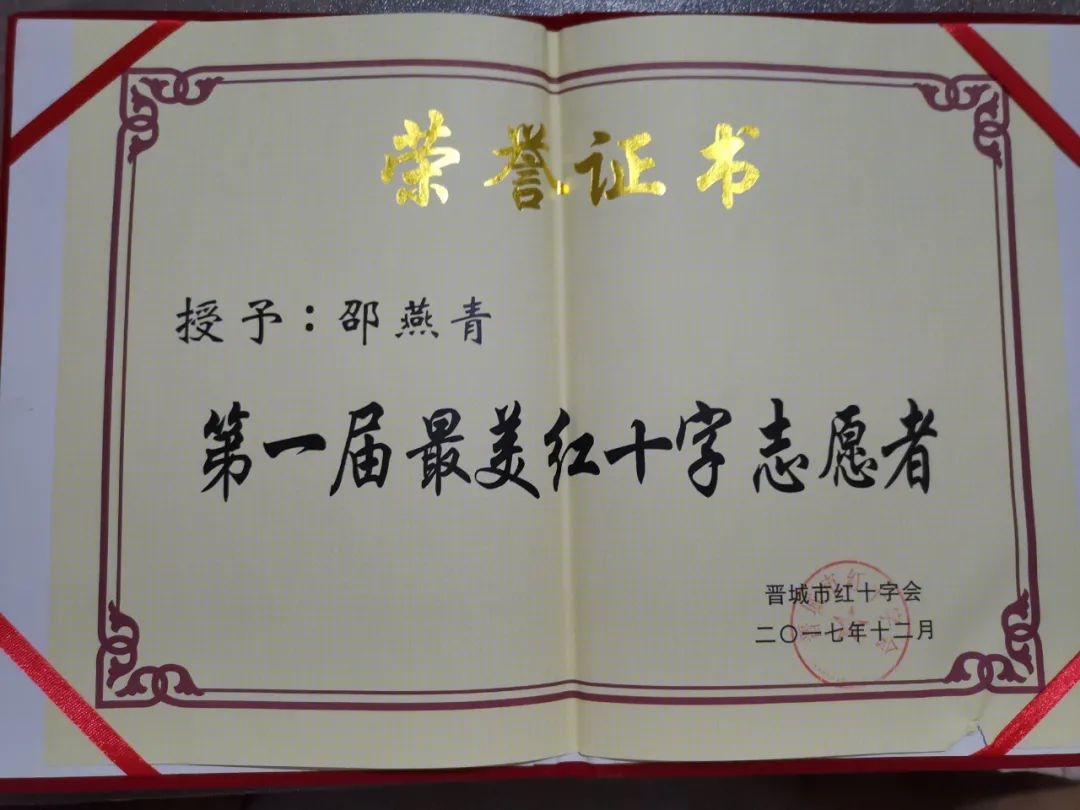 荣誉证书
授予：邵燕青
第一届最美红十字志愿者
晋城市红十字会
二〇一七年十二月